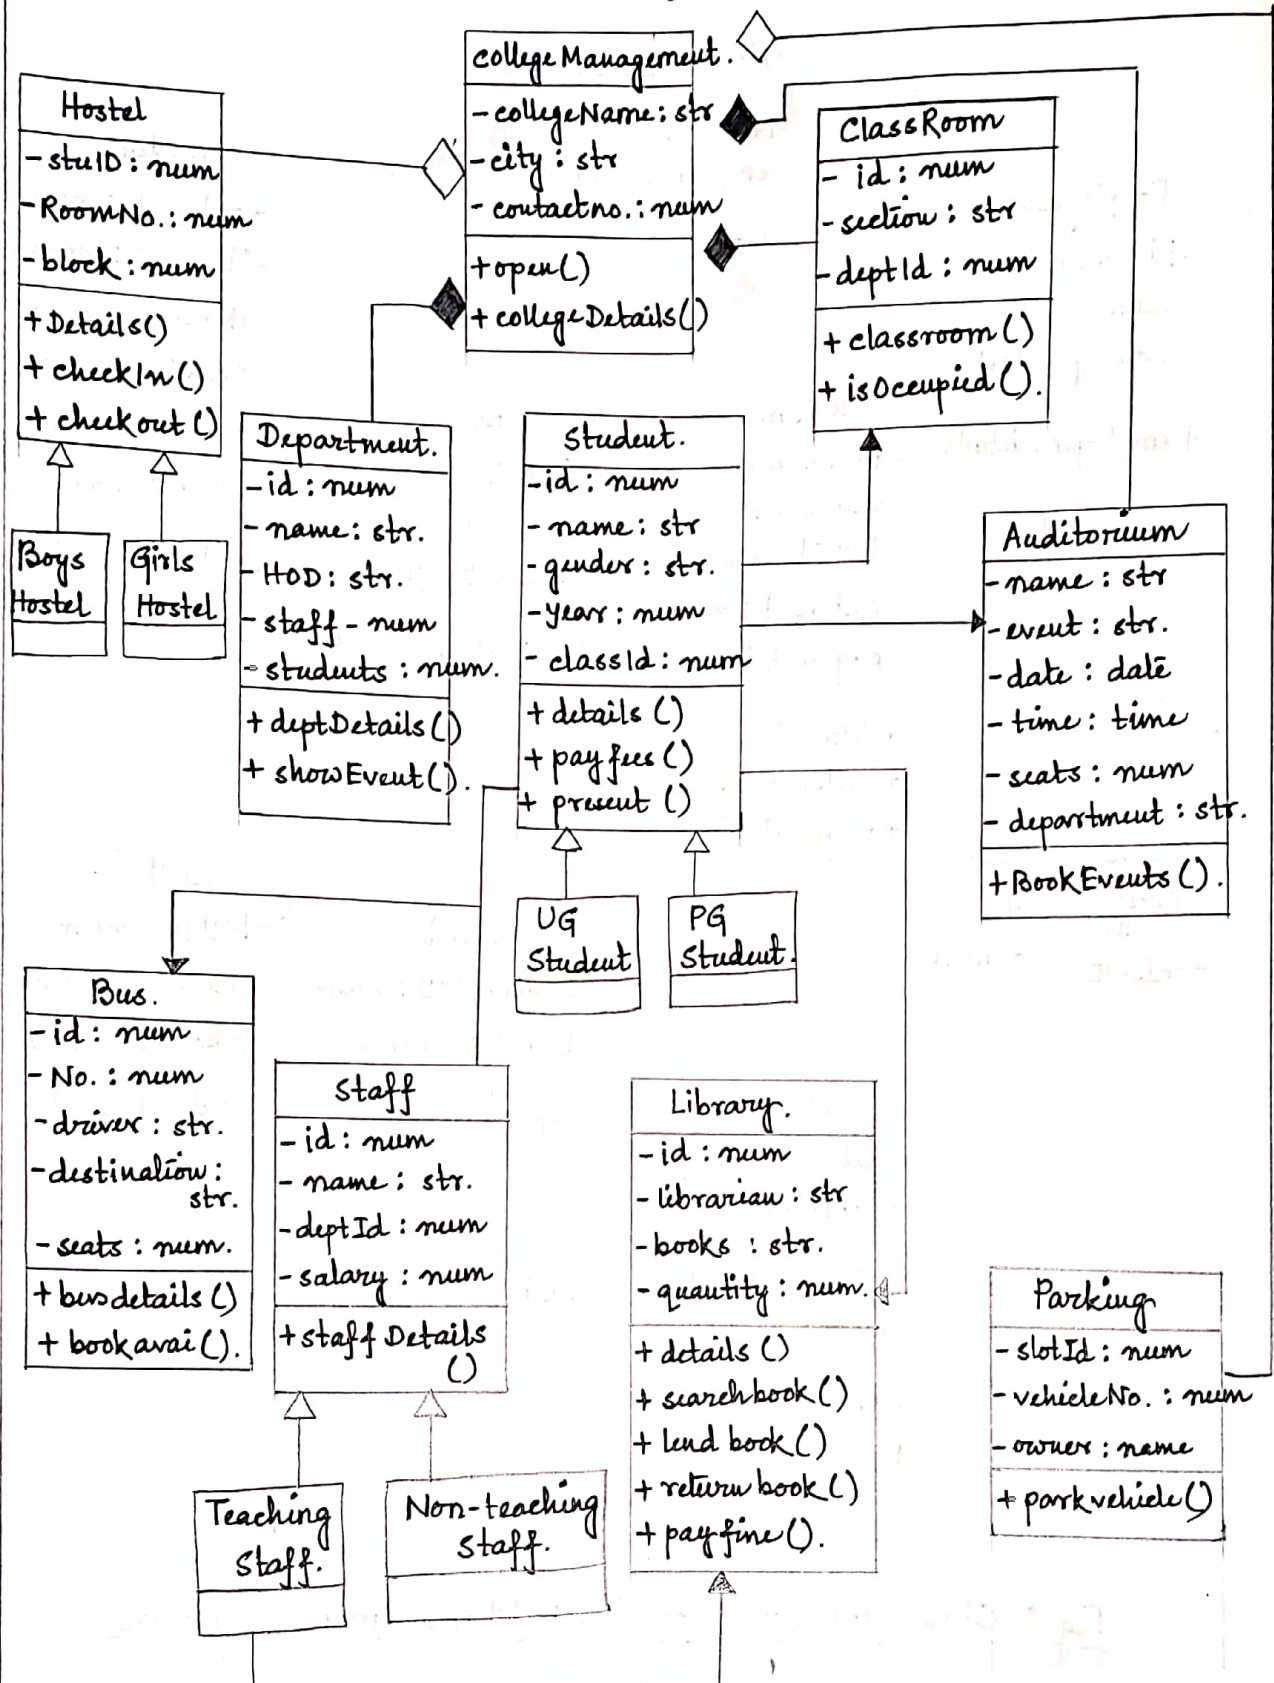 college Management.
- collegeName: str
- city : str
- contactno. : num
+ open()
+ collegeDetails()
Hostel
- stuID : num
- RoomNo. : num
- block : num
+ Details()
+ checkIn()
+ checkout()
Boys
Hostel
Girls
Hostel
ClassRoom
- id : num
- section : str
- deptId : num
+ classroom()
+ isOccupied().
Department.
- id : num
- name : str.
- HOD : str.
- staff - num
- students : num.
+ deptDetails()
+ showEvent().
Student.
- id : num
- name : str
- gender : str.
- year : num
- classId : num
+ details ()
+ pay fees ()
+ present ()
UG
Student
PG
Student.
Auditorium
- name : str
- event : str.
- date : date
- time : time
- seats : num
- department : str.
+ BookEvents().
Bus.
- id : num
- No. : num
- driver : str.
- destination :
str.
- seats : num.
+ busdetails ()
+ bookavai().
Staff
- id : num
- name : str.
- deptId : num
- salary : num
+ staff Details
()
Teaching
Staff.
Non-teaching
Staff.
Library.
- id : num
- librarian : str
- books : str.
- quantity : num.
+ details ()
+ searchbook()
+ lend book()
+ return book()
+ pay fine().
Parking
- slotId : num
- vehicleNo. : num
- owner : name
+ parkvehicle()